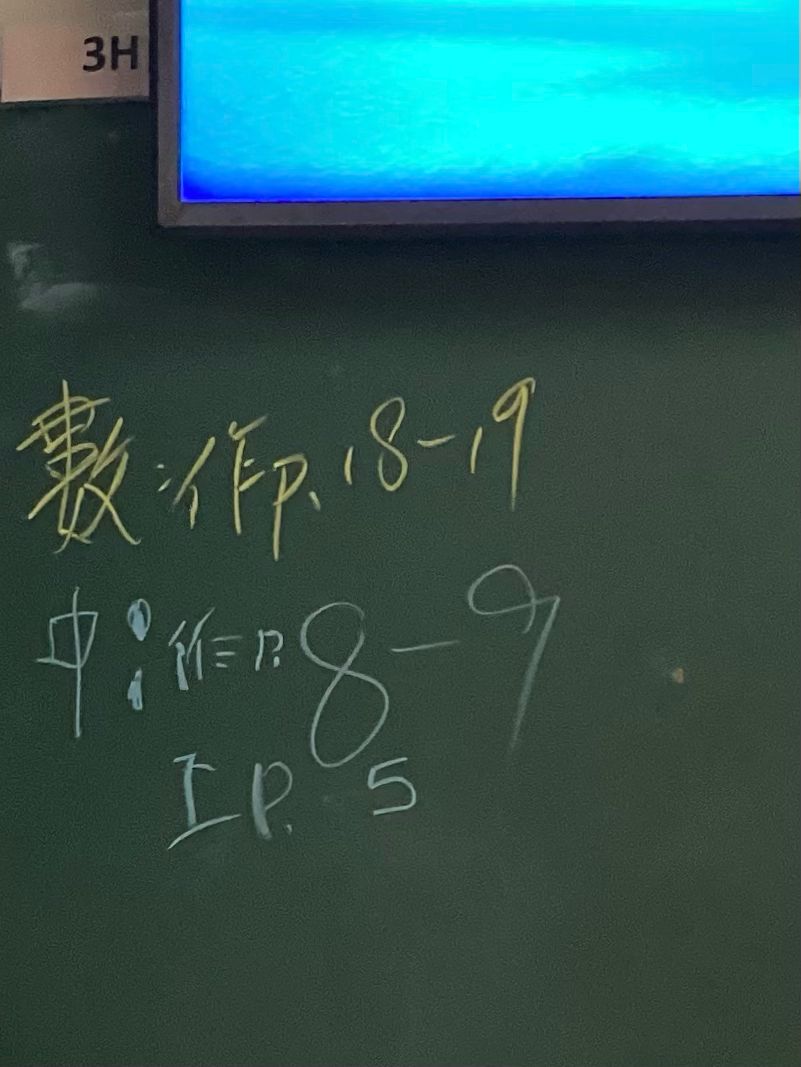 3H
數:作p.18-19
中:作P.8-9
工P.5